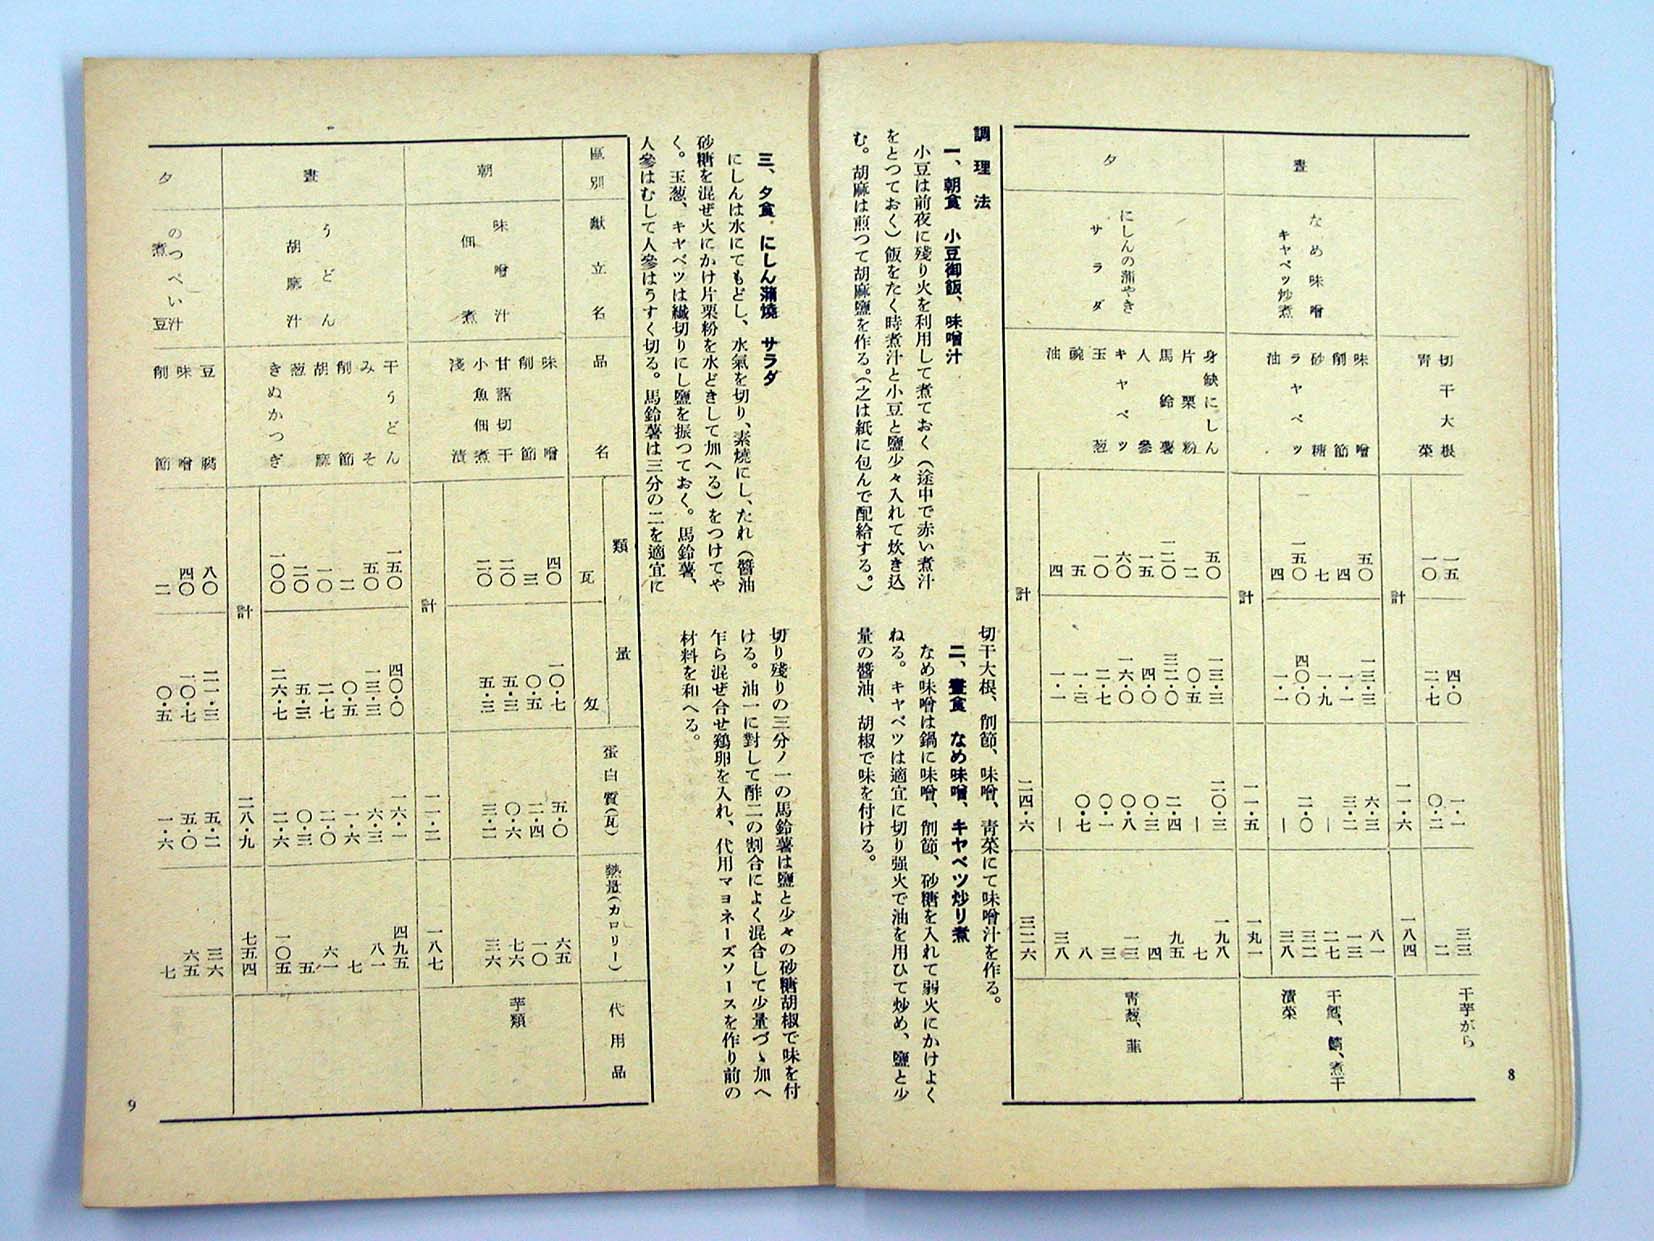 切干大根 一五 四・〇 一・一 三三 干芋がら
青菜 一〇 二・七 〇・二 二
計 一一・六 一八四
晝
なめ味噌
キヤベツ炒煮
味噌 五〇 一三・三 六・三 八一
削節 四 一・一 三・二 一三 干鱈、鯖、煮干
砂糖 七 一・九 ー 二七
ラヤベツ 一五〇 四〇・〇 二・〇 三二 漬菜
油 四 一・一 ー 三八
計 一一・五 一九一
夕
にしんの蒲やき
サラダ
身缺にしん 五〇 一三・三 二〇・三 一九八
片栗粉 二 〇・五 ー 七
馬鈴薯 一二〇 三二・〇 二・四 九五
人參 一五 四・〇 〇・三 四
キヤベツ 六〇 一六・〇 〇・八 一三 青葱、韮
玉葱 一〇 二・七 〇・一 三
豌 五 一・三 〇・七 八
油 四 一・一 ー 三八
計 二四・六 三二六
調理法
一、朝食 小豆御飯、味噌汁
小豆は前夜に殘り火を利用して煮ておく（途中で赤い煮汁
をとつておく）飯をたく時煮汁と小豆と鹽少々入れて炊き込
む。胡麻は煎つて胡麻鹽を作る。（之は紙に包んで配給する。）
切干大根、削節、味噌、靑菜にて味噌汁を作る。
二、晝食 なめ味噌、キヤベツ炒り煮
なめ味噌は鍋に味噌、削節、砂糖を入れて弱火にかけよく
ねる。キヤベツは適宜に切り强火で油を用ひて炒め、鹽と少
量の醬油、胡椒で味を付ける。
8
三、夕食 にしん蒲燒 サラダ
にしんは水にてもどし、水氣を切り、素燒にし、たれ（醬油
砂糖を混ぜ火にかけ片栗粉を水どきして加へる）をつけてや
く。玉葱、キヤベツは纎切りにし鹽を振つておく。馬鈴薯、
人參はむして人參はうすく切る。馬鈴薯は三分の二を適宜に
切り殘りの三分ノ一の馬鈴薯は鹽と少々の砂糖胡椒で味を付
ける。油一に對して酢二の割合によく混合して少量づゝ加へ
乍ら混ぜ合せ鷄卵を入れ、代用マヨネーズソースを作り前の
材料を和へる。
區別 獻立名 品名 類量 瓦 匁 蛋白質（瓦） 熱量（カロリー） 代用品
朝
味噌汁
佃煮
味噌 四〇 一〇・七 五・〇 六五
削節 三 〇・五 二・四 一〇
甘藷切干 二〇 五・三 〇・六 七六 芋類
小魚佃煮 二〇 五・三 三・二 三六
淺漬
計 一一・二 一八七
晝
うどん
胡麻汁
干うどん 一五〇 四〇・〇 一六・一 四九五
みそ 五〇 一三・三 六・三 八一
削節 二 〇・五 一・六 七
胡麻 一〇 二・七 二・〇 六一
葱 二〇 五・三 〇・三 五
きぬかつぎ 一〇〇 二六・七 二・六 一〇五
計 二八・九 七五四
夕
のつぺい汁
煮豆
豆腐 八〇 二一・三 五・二 三六
味噌 四〇 一〇・七 五・〇 六五
削節 二 〇・五 一・六 七
9